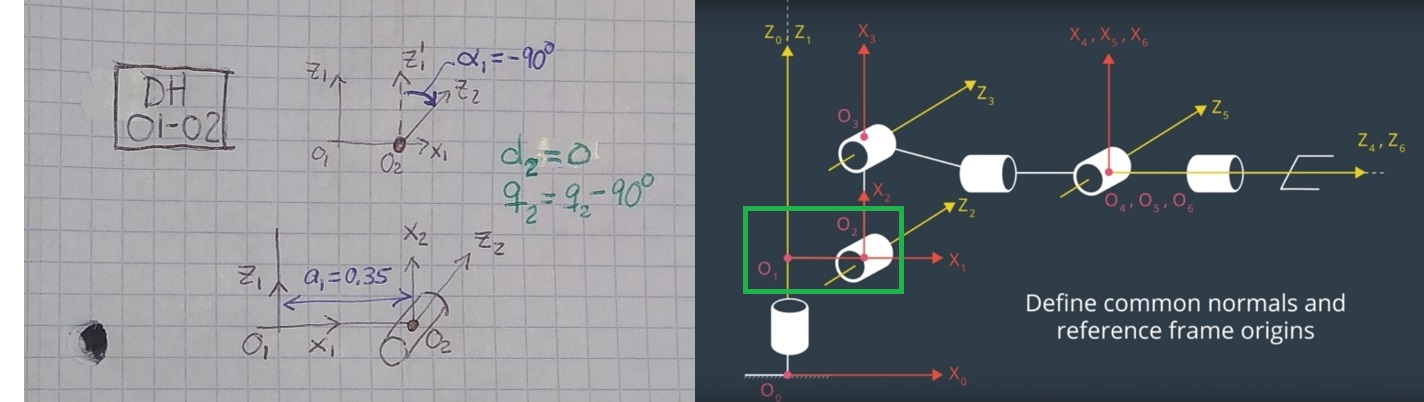 DH
01-02
Z₁
Z₁'
α₁=-90°
Z₂
O₁
O₂
X₁
d₂=0
q₂=q₂-90°
X₂
Z₂
Z₁
a₁=0.35
O₁
X₁
O₂
Z₀ , Z₁
X₃
X₄ , X₅ , X₆
Z₃
O₃
Z₅
Z₄ , Z₆
X₂
O₄ , O₅ , O₆
Z₂
O₂
O₁
X₁
Define common normals and
reference frame origins
X₀
O₀